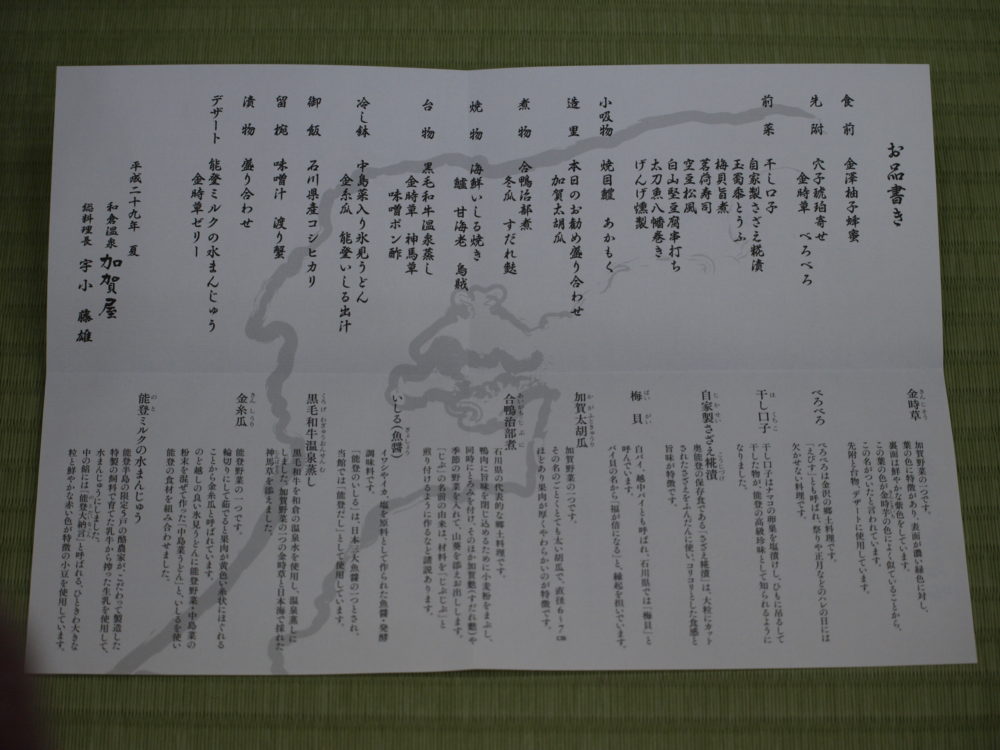 お品書き
食前 金澤柚子蜂蜜
先附 穴子琥珀寄せ
金時草 べろべろ
前菜 干し口子
自家製さざえ糀漬
玉蜀黍とうふ
梅貝旨煮
茗荷寿司
空豆松風
白山堅豆腐串打ち
太刀魚八幡巻き
げんげ燻製
小吸物 焼目鱧 あかもく
造里 本日のお勧め盛り合わせ
加賀太胡瓜
煮物 合鴨治部煮
冬瓜 すだれ麩
焼物 海鮮いしる焼き
鱸 甘海老 烏賊
台物 黒毛和牛温泉蒸し
金時草 神馬草
味噌ポン酢
冷し鉢 中島菜入り氷見うどん
金糸瓜 能登いしる出汁
御飯 石川県産コシヒカリ
留椀 味噌汁 渡り蟹
漬物 盛り合わせ
デザート 能登ミルクの水まんじゅう
金時草ゼリー
平成二十九年 夏
和倉温泉 加賀屋
総料理長 宇小 藤雄
金時草
加賀野菜の一つです。
葉の色に特徴があり、表面が濃い緑色に対し、
裏面は鮮やかな紫色をしています。
この葉の色が金時芋の色によく似ていることから、
この名がついたと言われています。
先附と台物、デザートに使用しています。
べろべろ
べろべろは金沢の郷土料理です。
「えびす」とも呼ばれ、祭りや正月などのハレの日には
欠かせない料理です。
干し口子
干し口子はナマコの卵巣を塩漬けし、ひもに吊るして
干した物が、能登の高級珍味として知られるように
なりました。
自家製さざえ糀漬
奥能登の保存食である「さざえ糀漬」は、大粒にカット
されたさざえをふんだんに使い、コリコリとした食感と
旨味が特徴です。
梅貝
白バイ、越中バイとも呼ばれ、石川県では「梅貝」と
呼んでいます。
バイ貝の名から「福が倍になる」と、縁起を担いでいます。
加賀太胡瓜
加賀野菜の一つです。
その名のごとくとても太い胡瓜で、直径6～7cm
ほどあり果肉が厚くやわらかいのが特徴です。
合鴨治部煮
石川県の代表的な郷土料理です。
鴨肉に旨味を閉じ込めるために小麦粉をまぶし、
同時にとろみを付け、そのほか加賀麩(すだれ麩)や
季節の野菜を入れて、山葵を添えお出しします。
「じぶ」の名前の由来は、材料を「じぶじぶ」と
煎り付けるように作るなど諸説あります。
いしる(魚醤)
イワシやイカ、塩を原料として作られた魚醤・発酵
調味料です。
「能登のいしる」は、日本三大魚醤の一つとされ、
当館では「能登だし」として使用しています。
黒毛和牛温泉蒸し
黒毛和牛を和倉の温泉水を使用し、温泉蒸しに
しました。加賀野菜の一つの金時草と日本海で採れた
神馬草を添えました。
金糸瓜
能登野菜の一つです。
輪切りにして茹でると果肉が黄色い糸状にほぐれる
ことから金糸瓜と呼ばれています。
のど越しの良い氷見うどんに能登野菜・中島菜の
粉末を混ぜて作った「中島菜うどん」と、いしるを使い
能登の食材を組み合わせました。
能登ミルクの水まんじゅう
能登半島の限定5戸の酪農家が、こだわって製造した
特製の飼料で育てた乳牛から搾った生乳を使用して、
水まんじゅうにしました。
中の餡には「能登大納言」と呼ばれる、ひときわ大きな
粒と鮮やかな赤い色が特徴の小豆を使用しています。